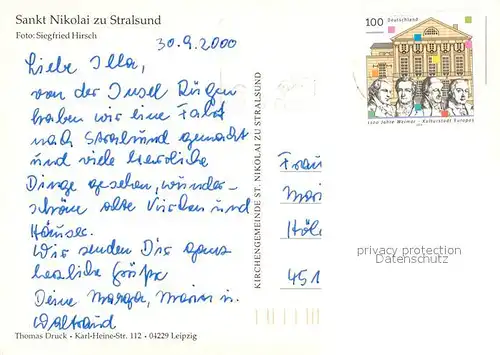 Sankt Nikolai zu Stralsund
Foto: Siegfried Hirsch
30.9.2000
Liebe Illa,
von der Insel Rügen
haben wir eine Fahrt
nach Stralsund gemacht
und viele herrliche
Dinge gesehen, wunder-
schöne alte Kirchen und
Häuser.
Wir senden Dir ganz
herzliche Grüße
Deine Marga, u.
Waltraud
Thomas Druck • Karl-Heine-Str. 112 • 04229 Leipzig
KIRCHENGEMEINDE ST. NIKOLAI ZU STRALSUND
100 Deutschland
1100 Jahre Weimar - Kulturstadt Europas
Frau
451
privacy protection
Datenschutz